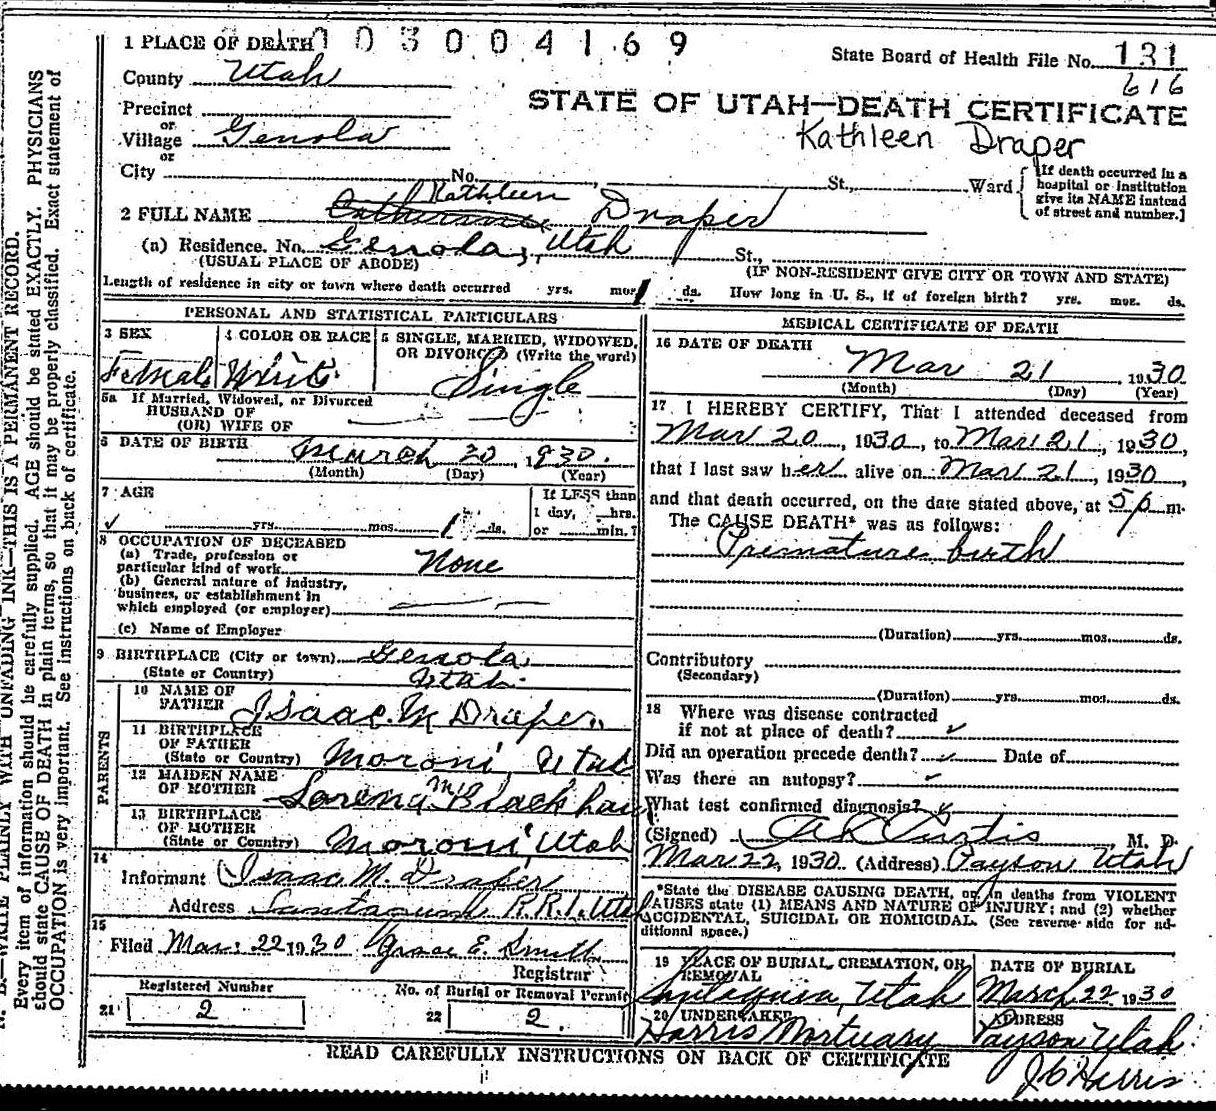 1 PLACE OF DEATH 1 0 0 3 0 0 4 1 6 9
State Board of Health File No. 131
616
County Utah
STATE OF UTAH—DEATH CERTIFICATE
Kathleen Draper
Precinct
or
Village Genola
or
City No. St., Ward
[If death occurred in a
hospital or institution
give its NAME instead
of street and number.]
Kathleen
2 FULL NAME Draper
(a) Residence. No. Genola, Utah St.,
(USUAL PLACE OF ABODE) (IF NON-RESIDENT GIVE CITY OR TOWN AND STATE)
Length of residence in city or town where death occurred yrs. mos. 1 ds. How long in U. S., if of foreign birth? yrs. mos. ds.
PERSONAL AND STATISTICAL PARTICULARS
3 SEX
Female
4 COLOR OR RACE
White
5 SINGLE, MARRIED, WIDOWED,
OR DIVORCED (Write the word)
Single
5a If Married, Widowed, or Divorced
HUSBAND OF
(OR) WIFE OF
6 DATE OF BIRTH March 20, 1930.
(Month) (Day) (Year)
7 AGE
yrs. mos. 1 ds.
If LESS than
1 day, hrs.
or min.?
8 OCCUPATION OF DECEASED
(a) Trade, profession or
particular kind of work None
(b) General nature of industry,
business, or establishment in
which employed (or employer)
(c) Name of Employer
9 BIRTHPLACE (City or town) Genola
(State or Country) Utah
PARENTS
10 NAME OF
FATHER Isaac M Draper
11 BIRTHPLACE
OF FATHER
(State or Country) Moroni Utah
12 MAIDEN NAME
OF MOTHER Lorena Mc Blackham
13 BIRTHPLACE
OF MOTHER
(State or Country) Moroni, Utah
14
Informant Isaac M. Draper
Address Santaquin R.R.1, Utah
15
Filed Mar. 22 1930 Grace E. Smith
Registrar
Registered Number
21 2
No. of Burial or Removal Permit
22 2.
MEDICAL CERTIFICATE OF DEATH
16 DATE OF DEATH
Mar 21, 1930
(Month) (Day) (Year)
17 I HEREBY CERTIFY, That I attended deceased from
Mar 20, 1930, to Mar 21, 1930,
that I last saw her alive on Mar 21, 1930,
and that death occurred, on the date stated above, at 5 p m.
The CAUSE DEATH* was as follows:
Premature birth
(Duration) yrs. mos. ds.
Contributory
(Secondary)
(Duration) yrs. mos. ds.
18 Where was disease contracted
if not at place of death?
Did an operation precede death? Date of
Was there an autopsy?
What test confirmed diagnosis?
(Signed) A L Curtis, M. D.
Mar 22, 1930 (Address) Payson Utah
*State the DISEASE CAUSING DEATH, or in deaths from VIOLENT
CAUSES state (1) MEANS AND NATURE OF INJURY; and (2) whether
ACCIDENTAL, SUICIDAL OR HOMICIDAL. (See reverse side for ad-
ditional space.)
19 PLACE OF BURIAL, CREMATION, OR
REMOVAL
Santaquin, Utah
DATE OF BURIAL
March 22 1930
20 UNDERTAKER
Harris Mortuary
ADDRESS
Payson Utah.
J C Harris
READ CAREFULLY INSTRUCTIONS ON BACK OF CERTIFICATE
N. B.—WRITE PLAINLY WITH UNFADING INK—THIS IS A PERMANENT RECORD.
Every item of information should be carefully supplied. AGE should be stated EXACTLY. PHYSICIANS
should state CAUSE OF DEATH in plain terms, so that it may be properly classified. Exact statement of
OCCUPATION is very important. See instructions on back of certificate.